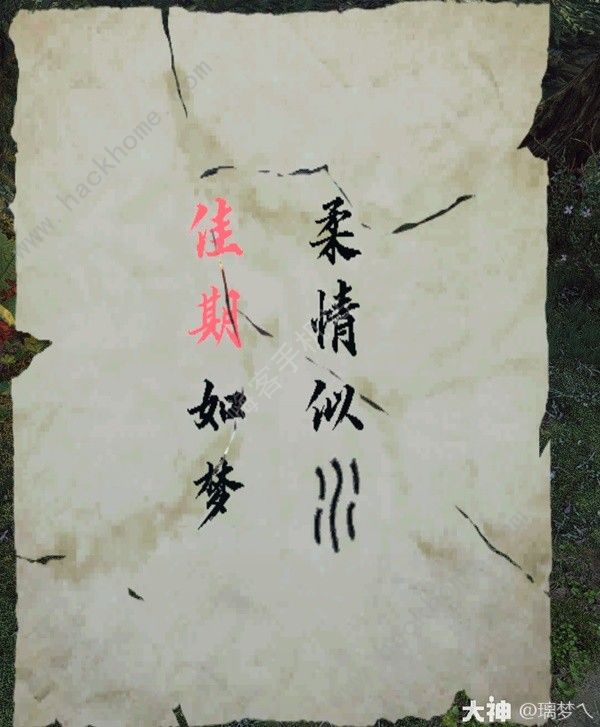 柔情似水
佳期如梦
www.hackhome.com
大神 @璃梦乀